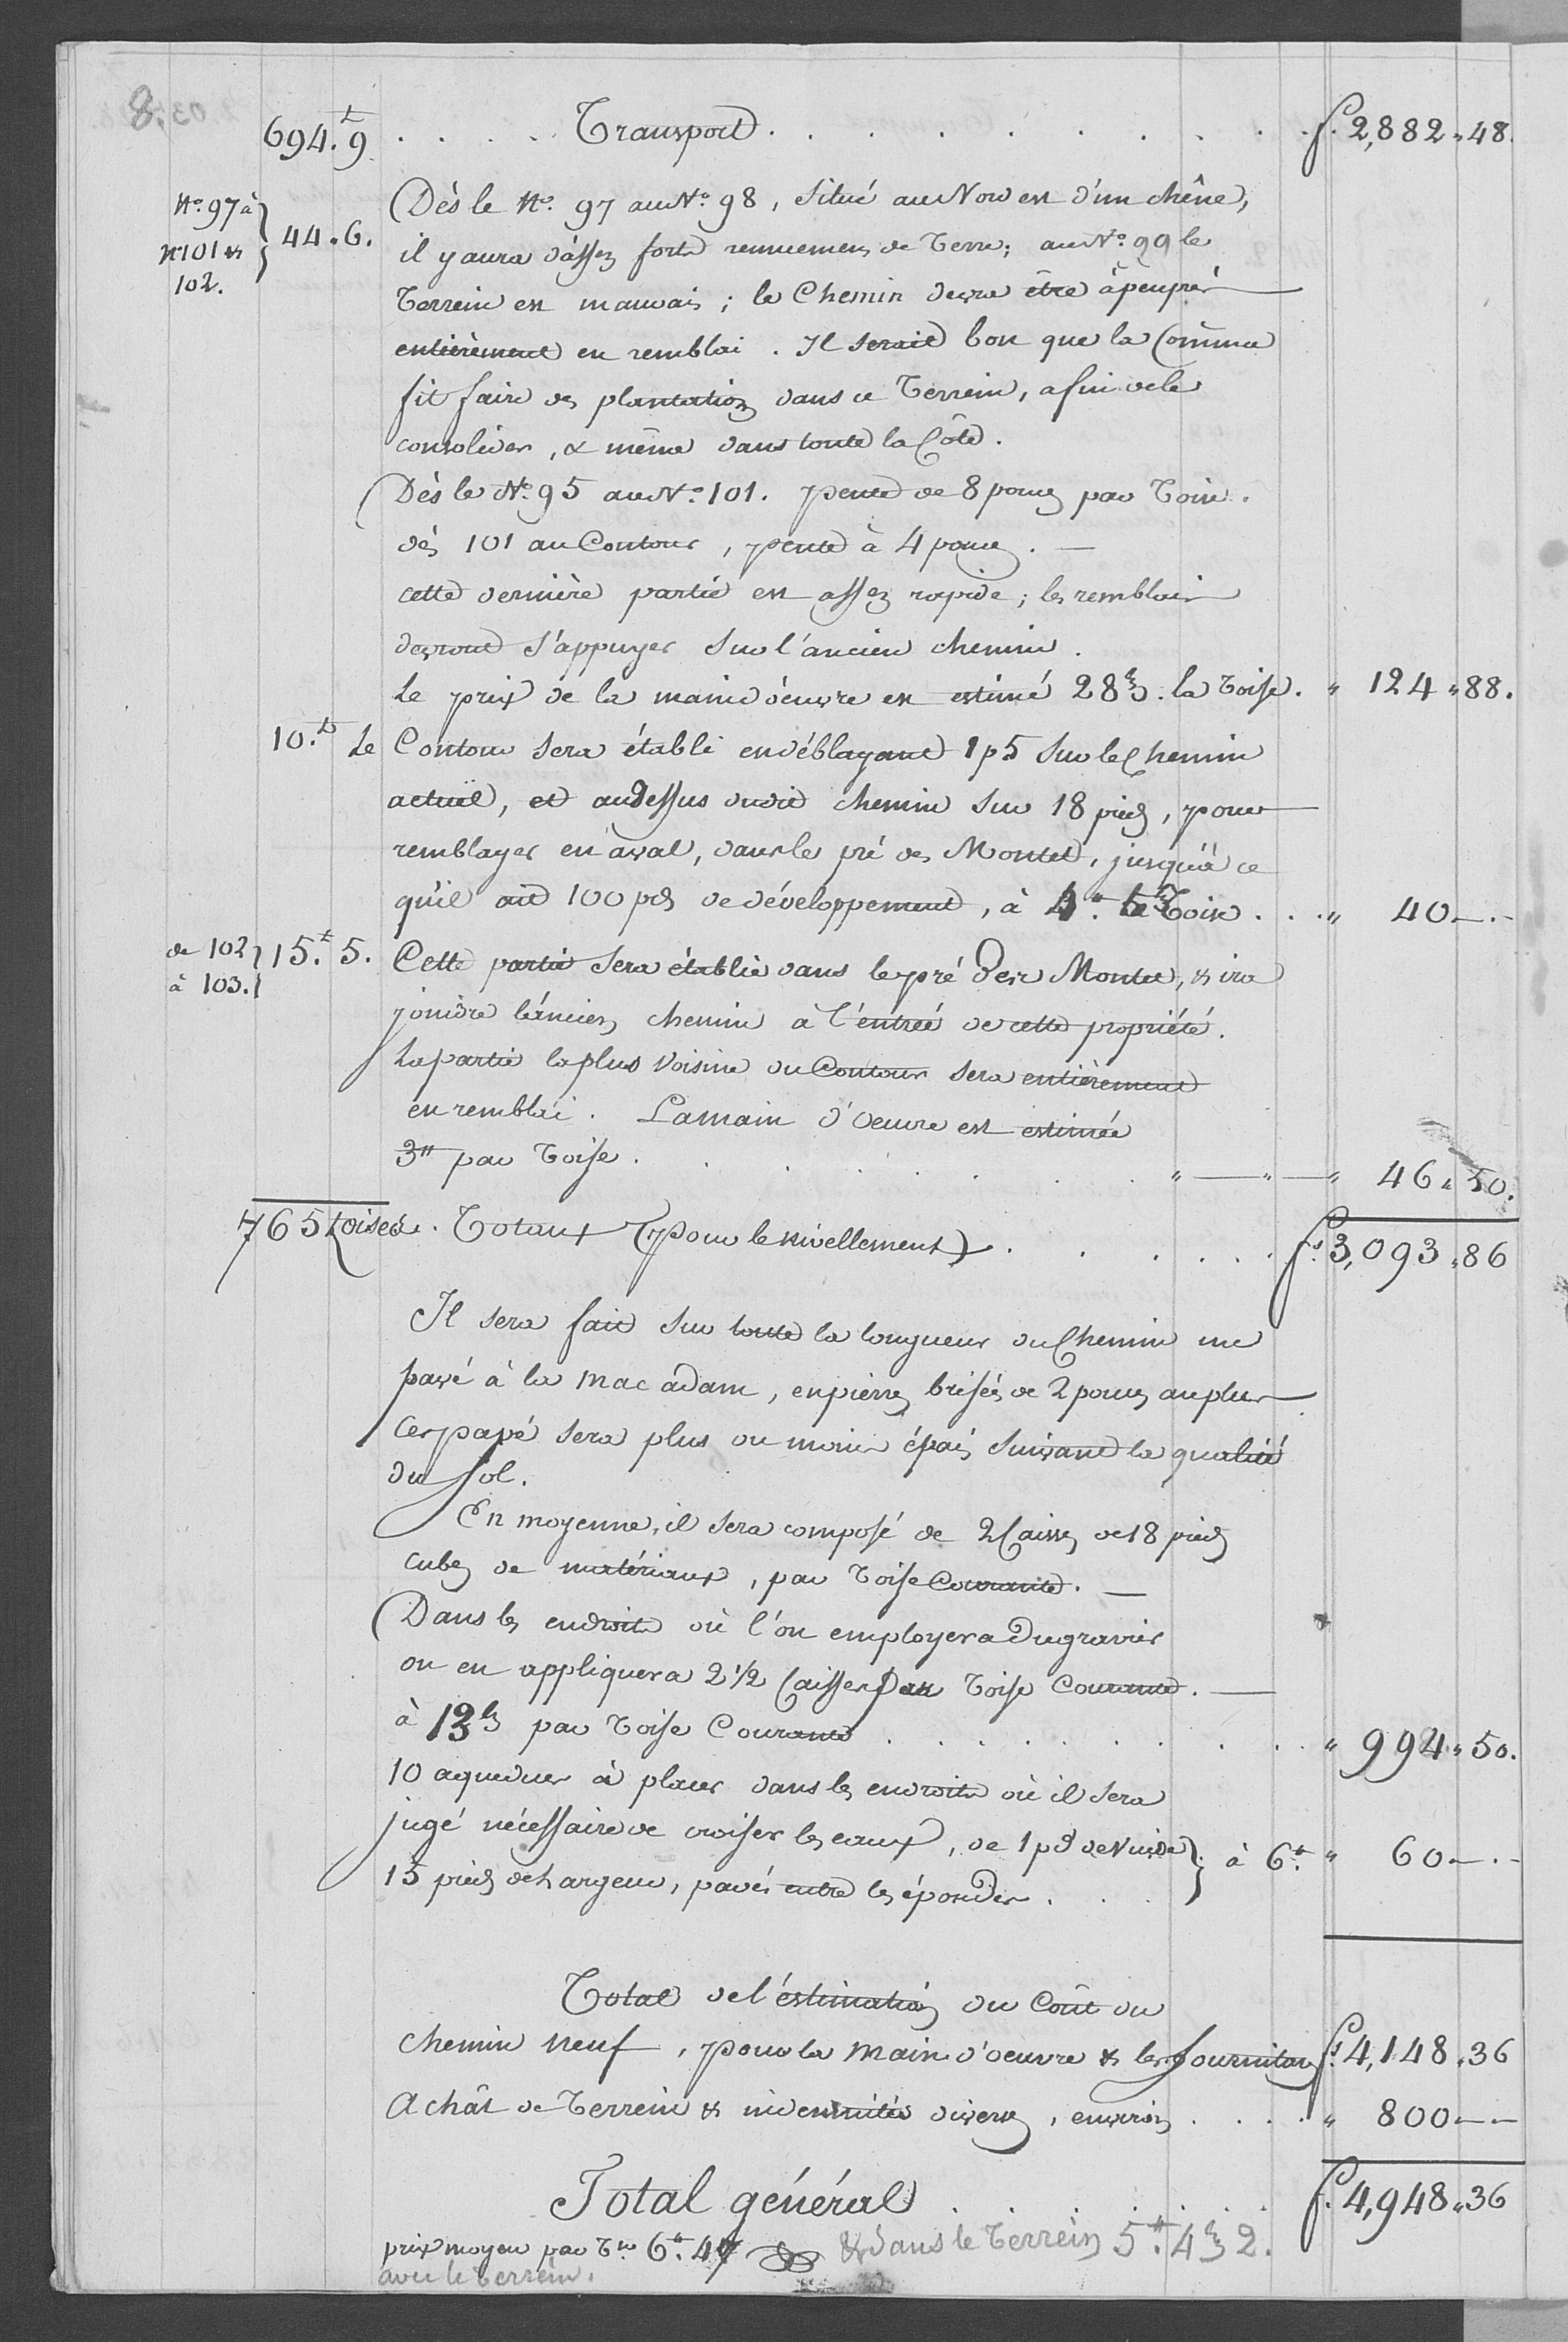 8.
694.t 9. . . . . Transport . . . . . . . . f. 2,882 " 48.
No. 97 à No 101 et 102. } 44. 6. Dès le No. 97 au No. 98, situé au Nord est d'un chêne,
il y aura d'assez forts remuemens de Terre; au No. 99 le
Terrein est mauvais; le Chemin devra être àpeuprès
entièrement en remblai. Il serait bon que la Comune
fit faire des plantations dans ce Terrein, afin de le
consolider, & même dans toute la Côte.
Dès le No. 95 au No. 101. pente de 8 pouces par Toise.
dès 101 au Contour, pente à 4 pouces. —
cette dernière partie est assez rapide; les remblais
devront s'appuyer sur l'ancien chemin.
Le prix de la main d'oeuvre est estimé 28 bz. la Toise. " 124 " 88.
10.t Le Contour sera établi en déblayant 1 p 5 sur le Chemin
actuel, et audessus dudit chemin sur 18 pieds, pour
remblayer en aval, dans le pré des Montet, jusqu'à ce
qu'il ait 100 pds de développement, à 4 " la Toise . . . " 40 — . -
de 102 à 103. } 15.t 5. Cette partie sera établie dans le pré des Montet, et ira
joindre l'ancien chemin à l'entrée de cette propriété.
La partie la plus voisine du Contour sera entièrement
en remblai. La main d'oeuvre est estimée
3 " par Toise . . . . . . . " — " — " 46 " 50.
765 toises. Totaux (pour le nivellement) . . . . . . fs. 3,093 " 86
Il sera fait sur toute la longueur du Chemin un
pavé à la mac adam, en pierres brisées de 2 pouces au plus
Ce pavé sera plus ou moins épais suivant la qualité
du sol.
En moyenne, il sera composé de 2 Caisses de 18 pieds
cubes de matériaux, par Toise Courante. —
Dans les endroits où l'on employera du gravier
on en appliquera 2 1/2 Caisses par Toise Courante. —
à 13 bz par Toise Courante . . . . . . . . " 994 " 50.
10 aqueducs à placer dans les endroits où il sera
jugé nécessaire de croiser les eaux, de 1 pd de Vuide
15 pieds de Largeur, pavés entre les épondes . . . } à 6 " " 60 — . -
Total de l'estimation du Coût du
chemin neuf, pour la main d'oeuvre & les fournitures fs. 4,148 " 36
Achât de Terrein & indemnités diverses, environ . . . . " 800 — -
Total général . . . . . f. 4,948 " 36
prix moyen par Tse 6 ". 47 & sans le Terrein 5 ". 4 bz 2.
avec le terrein.